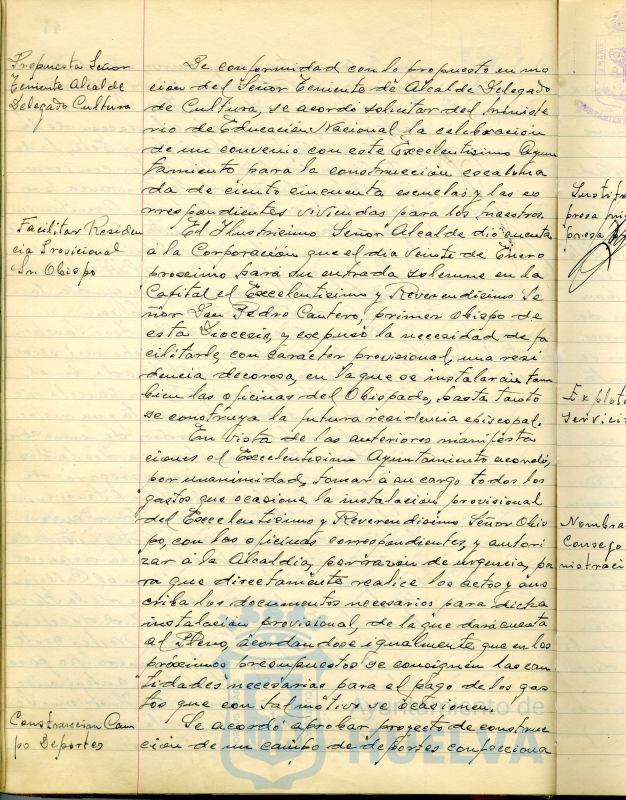 Propuesta Señor
Teniente Alcalde
Delegado Cultura
De conformidad con lo propuesto en mo
ción del Señor Teniente de Alcalde Delegado
de Cultura, se acordó solicitar del Ministe
rio de Educación Nacional la celebración
de un convenio con este Excelentisimo Ayun
tamiento para la construcción escalona
da de ciento cincuenta escuelas y las co
rrespondientes viviendas para los Maestros.
Facilitar Residen
cia Provicional
Sr. Obispo
El Ilustrisimo Señor Alcalde dió cuenta
á la Corporación que el dia veinte de Enero
proximo hará su entrada solemne en la
Capital el Excelentisimo y Reverendisimo Se
ñor Don Pedro Cantero, primer Obispo de
esta Diocesis, y expuso la necesidad de fa
cilitarle, con carácter provisional, una resi
dencia decorosa, en la que se instalarían tam
bien las oficinas del Obispado, hasta tanto
se construya la futura residencia episcopal.
En vista de las anteriores manifesta
ciones el Excelentisimo Ayuntamiento acordó,
por unanimidad, tomar á su cargo todos los
gastos que ocasione la instalación provisional
del Excelentisimo y Reverendisimo Señor Obis
po, con las oficinas correspondientes, y autori
zar á la Alcaldia, por razon de urgencia, pa
ra que directamente realice los actos y sus
criba los documentos necesarios para dicha
instalación provisional, de la que dará cuenta
al Pleno, acordandose igualmente que en los
próximos presupuestos se consignen las can
tidades necesarias para el pago de los gas
tos que con tal motivo se ocasionen.
Construccion Cam
po Deportes
Se acordó aprobar proyecto de construc
ción de un campo de deportes confecciona
Ayuntamiento de
HUELVA
presa
Explot
Servici
Nombra
Consejo
nistraci